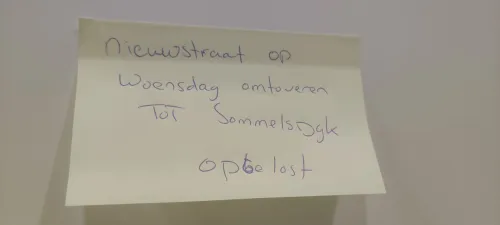 nieuwstraat op
woensdag omtoveren
Tot SommelsDyk
opgelost